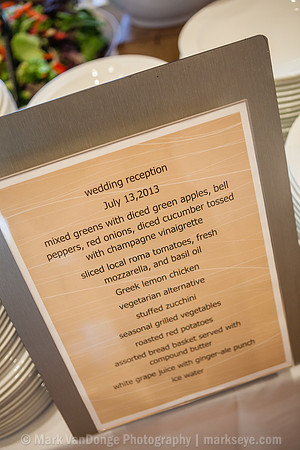 wedding reception
July 13,2013
mixed greens with diced green apples, bell
peppers, red onions, diced cucumber tossed
with champagne vinaigrette
sliced local roma tomatoes, fresh
mozzarella, and basil oil
Greek lemon chicken
vegetarian alternative
stuffed zucchini
seasonal grilled vegetables
roasted red potatoes
assorted bread basket served with
compound butter
white grape juice with ginger-ale punch
ice water
© Mark VanDonge Photography | markseye.com